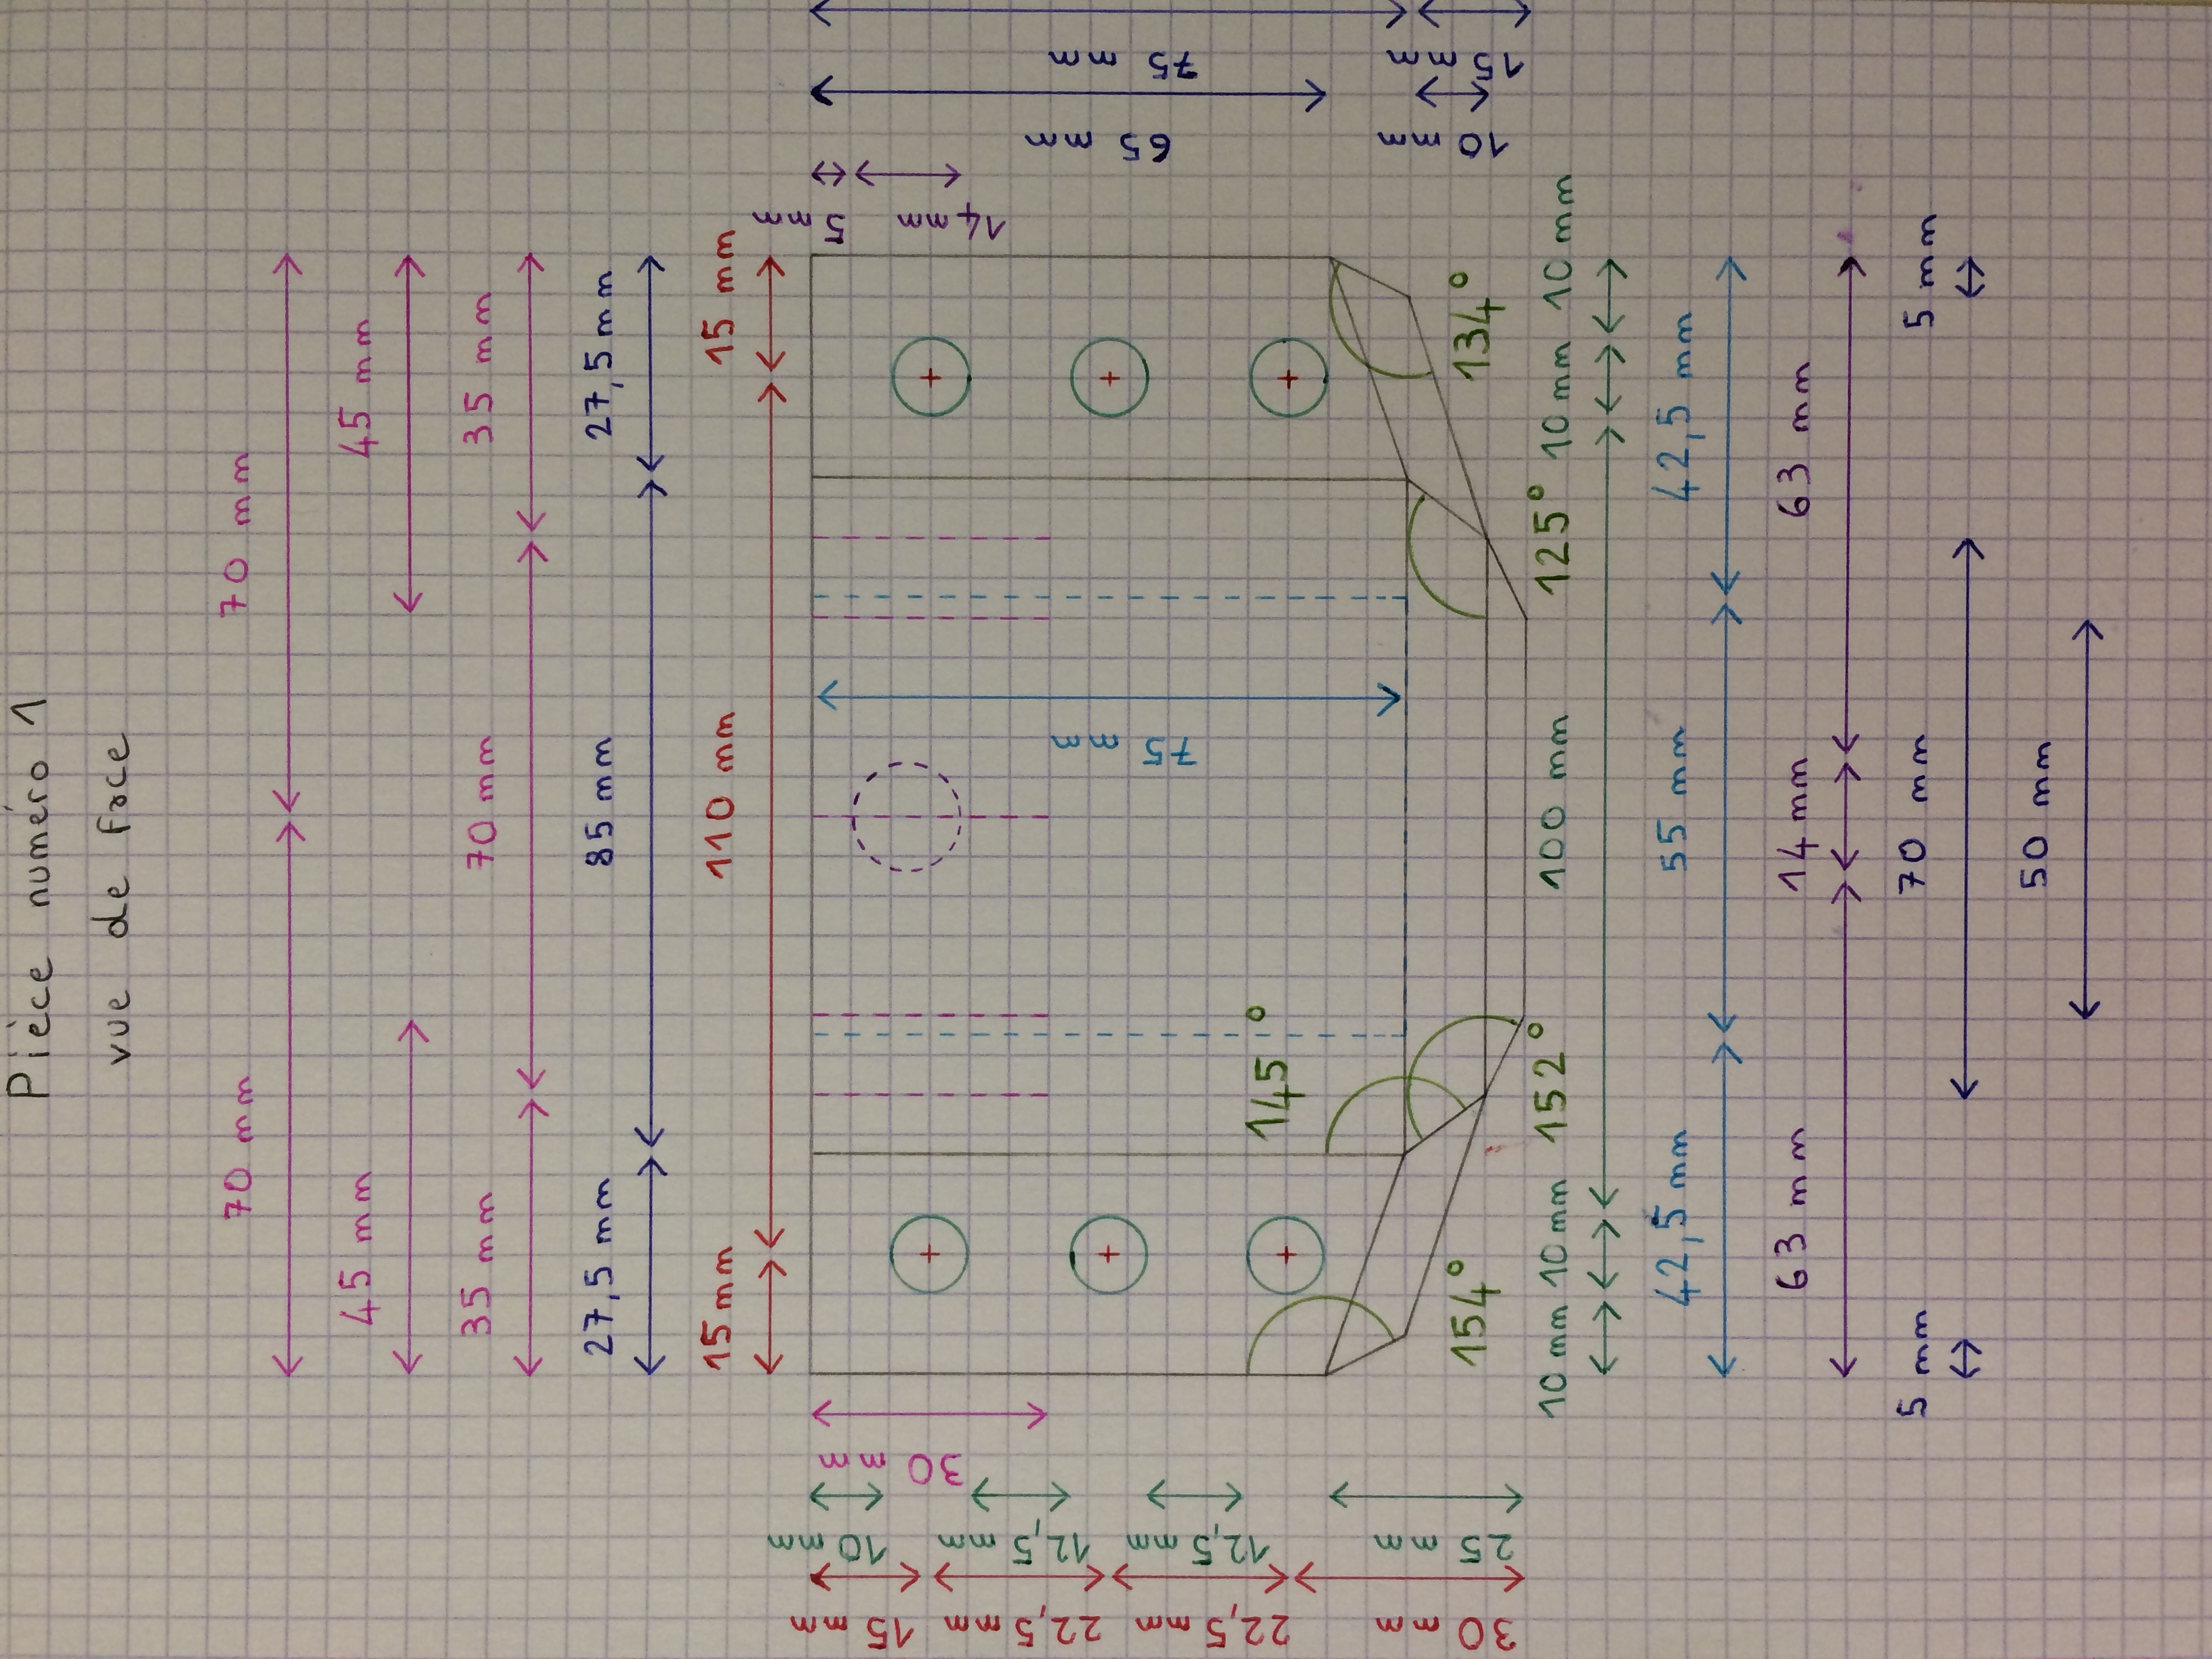 Pièce numéro 1
vue de face
70 mm
70 mm
45 mm
45 mm
35 mm
70 mm
35 mm
27,5 mm
85 mm
27,5 mm
15 mm
110 mm
15 mm
30 mm
10 mm
12,5 mm
12,5 mm
25 mm
15 mm
22,5 mm
22,5 mm
30 mm
75 mm
5 mm
14 mm
65 mm
10 mm
75 mm
15 mm
145°
154°
152°
125°
134°
10 mm
10 mm
100 mm
10 mm
10 mm
42,5 mm
55 mm
42,5 mm
63 mm
14 mm
63 mm
5 mm
70 mm
5 mm
50 mm